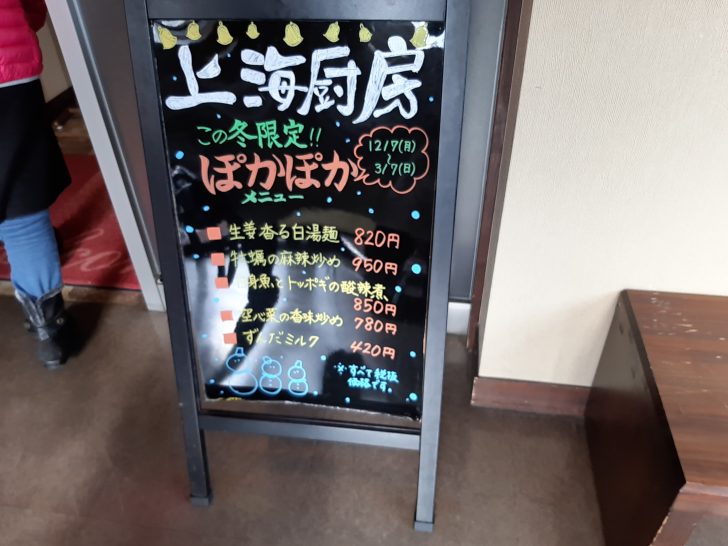 上海厨房
この冬限定!!
12/7(月)
~
3/7(日)
ぽかぽか
メニュー
生姜香る白湯麺 820円
牡蠣の麻辣炒め 950円
身魚とトッポギの酸辣煮
850円
空心菜の香味炒め 780円
ずんだミルク 420円
※すべて税抜
価格です。